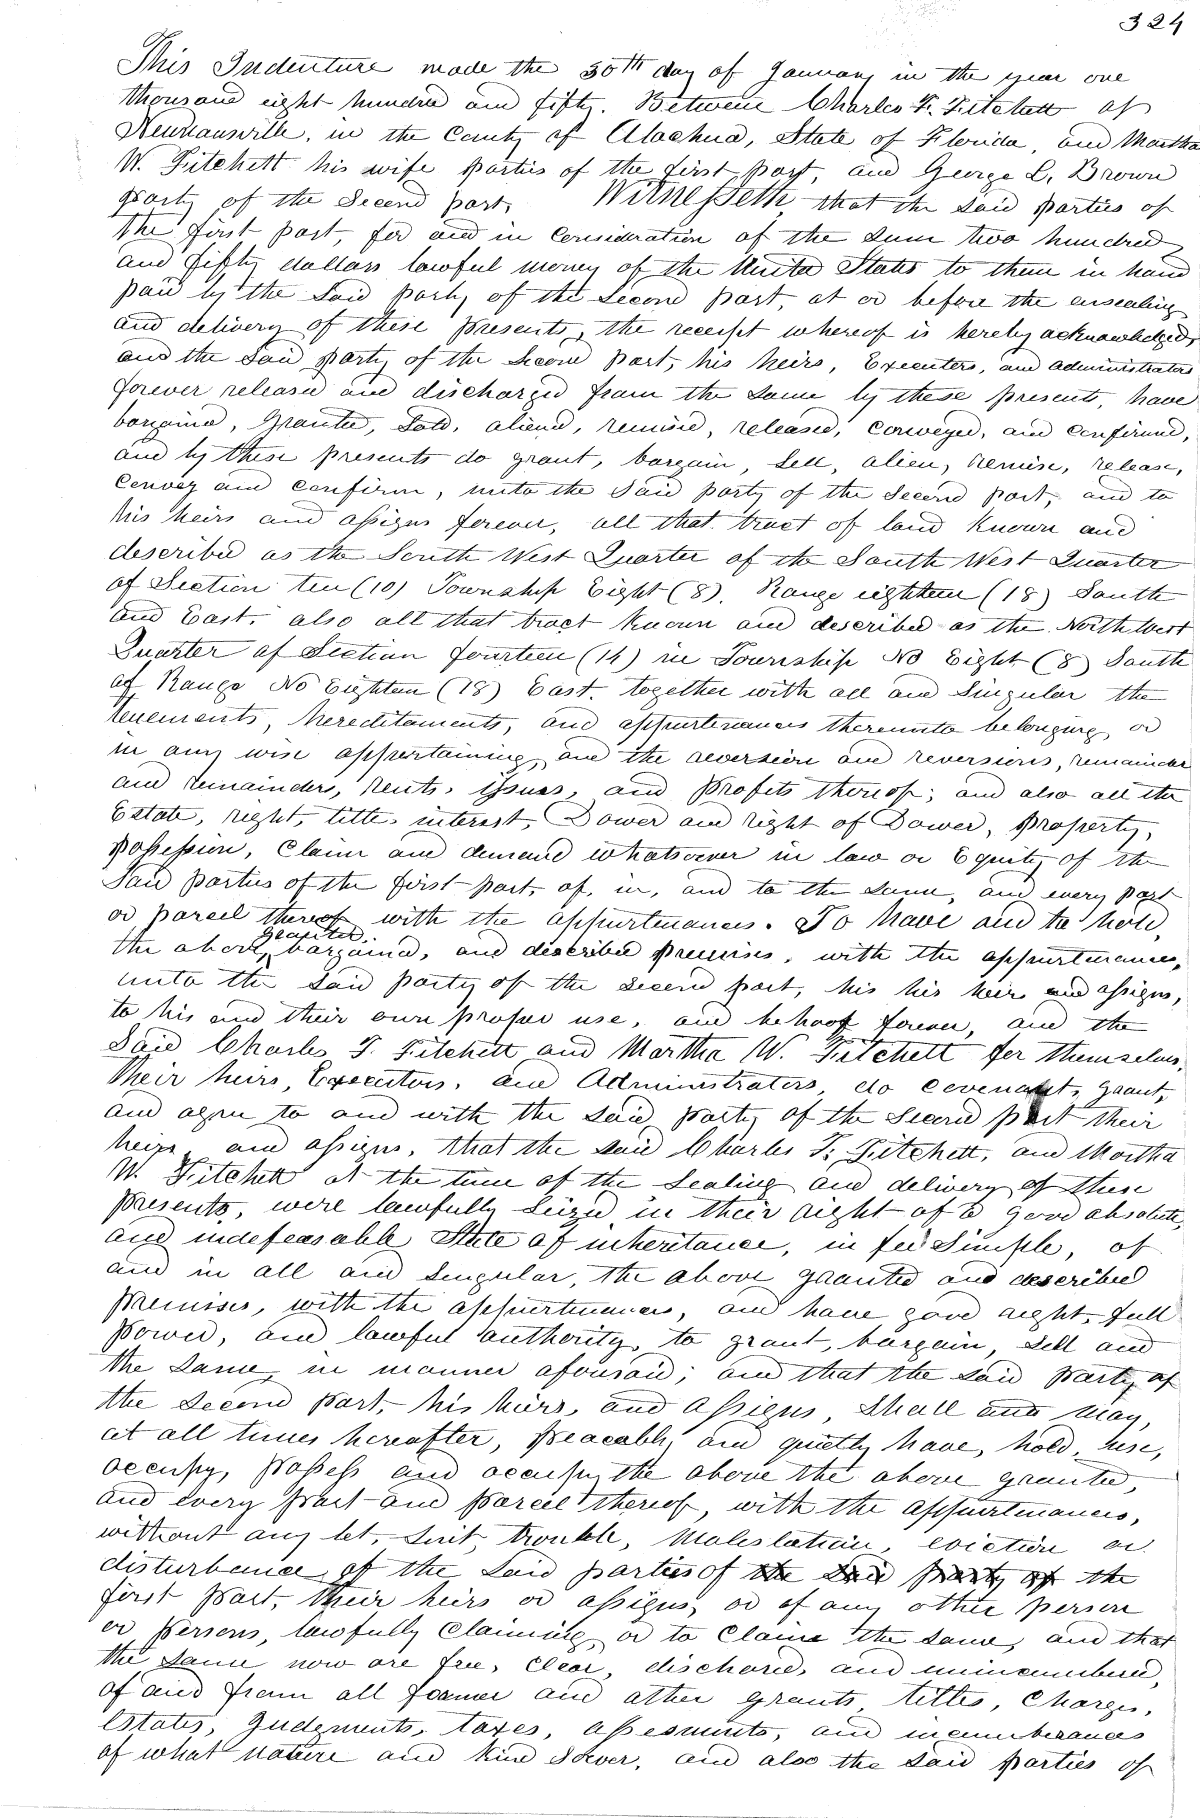 324
This Indenture made the 30th day of January in the year one
thousand eight hundred and fifty. Between Charles F. Fitchett of
Newnansville, in the County of Alachua, State of Florida, and Martha
W. Fitchett his wife parties of the first part, and George L. Brown
party of the Second part. Witnesseth that the said parties of
the first part, for and in consideration of the sum two hundred
and fifty dollars lawful money of the United States to them in hand
paid by the said party of the second part, at or before the ensealing
and delivery of these presents, the receipt whereof is hereby acknowledged,
and the said party of the second part, his heirs, Executers, and administrators
forever released and discharged from the same by these presents, have
bargained, granted, sold, aliened, remised, released, conveyed, and confirmed,
and by these presents do grant, bargain, sell, alien, remise, release,
convey and confirm, unto the said party of the second part, and to
his heirs and assigns forever, all that tract of land known and
described as the South West Quarter of the South West Quarter
of Section ten (10) Township Eight (8). Range eighteen (18) South
and East, also all that tract known and described as the North West
Quarter of Section fourteen (14) in Township No Eight (8) South
of Range No Eighteen (18) East. together with all and singular the
tenements, hereditaments, and appurtenances thereunto belonging, or
in any wise appertaining, and the reversion and reversions, remainder
and remainders, rents, issues, and profits thereof; and also all the
Estate, right, title, interest, Dower and right of Dower, property,
possession, claim and demand whatsoever in law or Equity of the
said parties of the first part, of, in, and to the same, and every part
or parcel thereof with the appurtenances. To have and to hold,
the above granted, bargained, and described premises, with the appurtenances,
unto the said party of the second part, his his heirs and assigns,
to his and their own proper use, and behoof forever, and the
said Charles F. Fitchett and Martha W. Fitchett for themselves,
their heirs, Executors, and Administrators, do covenant, grant,
and agree to and with the said party of the second part their
heirs and assigns, that the said Charles F. Fitchett, and Martha
W. Fitchett at the time of the sealing and delivery of these
presents, were lawfully seized in their right of a good absolute,
and indefeasable State of inheritance, in fee simple, of
and in all and singular, the above granted and described
premises, with the appurtenances, and have good right, full
power, and lawful authority, to grant, bargain, sell and
the same in manner aforesaid; and that the said party of
the second part, his heirs, and assigns, shall and may,
at all times hereafter, peacably and quietly have, hold, use,
occupy, possess and occupy the above the above granted,
and every part and parcel thereof, with the appurtenances,
without any let, suit, trouble, molestation, eviction or
disturbance of the said parties of the said party of the
first part, their heirs or assigns, or of any other person
or persons, lawfully claiming, or to claim the same, and that
the same now are free, clear, discharged, and unincumbered,
of and from all former and other grants, titles, charges,
estates, judgments, taxes, assesments, and incumberances
of what nature and kind soever, and also the said parties of